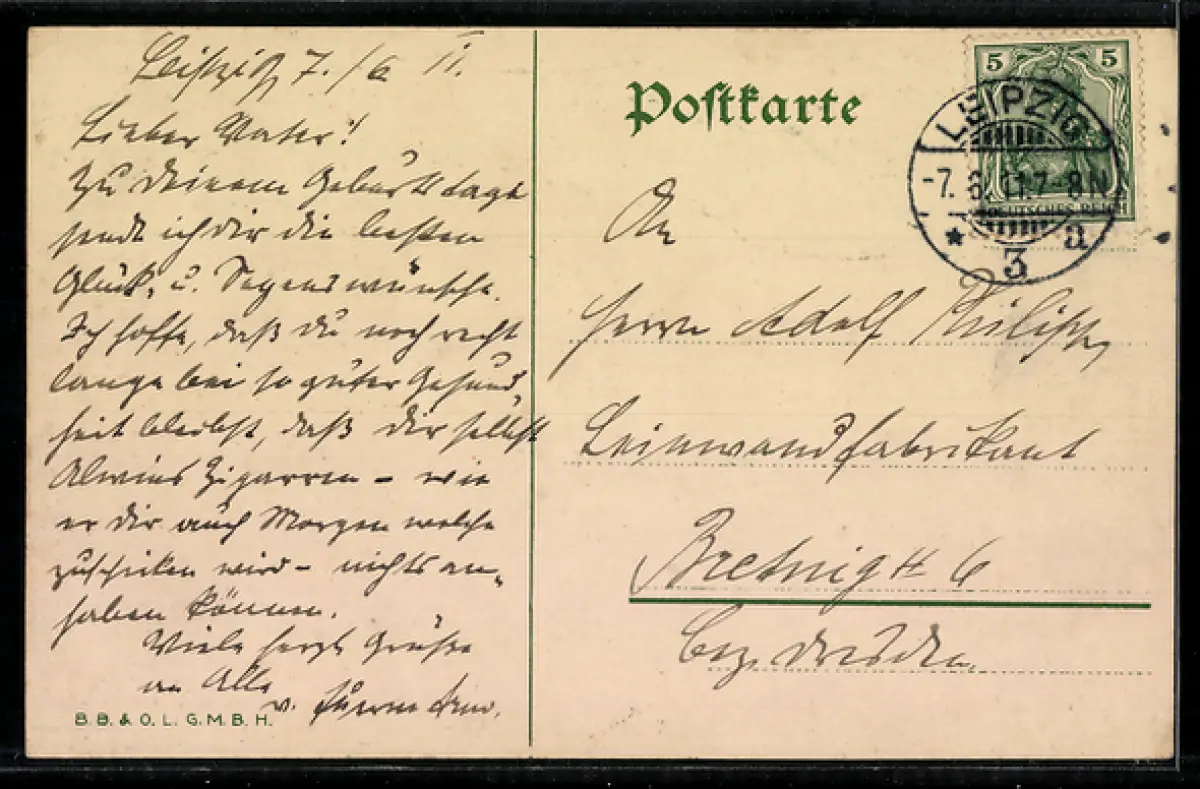 Leipzig, 7./6 11.
Lieber Vater!
Zu deinem Geburtstage
sende ich dir die besten
Glück- u. Segenswünsche.
Ich hoffe, daß du noch recht
lange bei so guter Gesund-
heit bleibst, daß dir selbst
Alwins Zigarren – wie
er dir auch Morgen welche
zuschicken wird – nichts an-
haben können.
Viele herzl. Grüße
an Alle
v.
B. B. & O. L. G. M. B. H.
Postkarte
5 5
DEUTSCHES REICH
LEIPZIG
-7. 6. 11. 7-8 N.
* 3 a
An
Herrn Adolf Philipp,
Leinwandfabrikant
Bretnig # 6
Bez. Dresden.